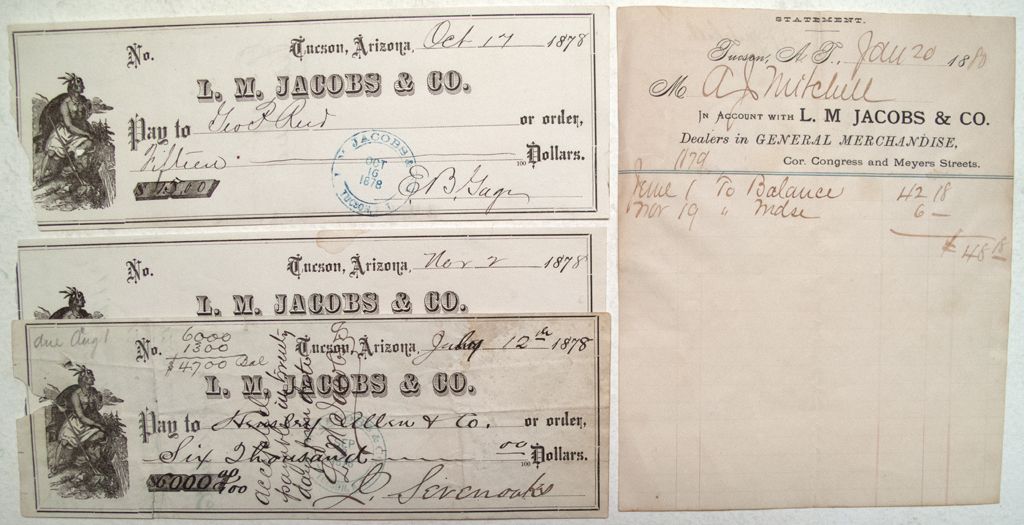 No. Tucson, Arizona, Oct 17 1878
L. M. JACOBS & CO.
Pay to Geo P. Reid or order,
Fifteen 100 Dollars.
$15.00
JACOBS &
OCT
16
1878
TUCSON
E. B. Gage
No. Tucson, Arizona, Nov 2 1878
L. M. JACOBS & CO.
due Aug 1
6000
1300
$4700 Bal
No. Tucson, Arizona, July 12th 1878
L. M. JACOBS & CO.
Pay to Allen & Co. or order,
Six Thousand 00/100 Dollars.
6000 00/100
accepted
payable in twenty
days from date
L M Jacobs & Co
L. Sevenoaks
STATEMENT.
Tucson, A. T., Jan 20 1880
M A J Mitchell
IN ACCOUNT WITH L. M JACOBS & CO.
Dealers in GENERAL MERCHANDISE,
Cor. Congress and Meyers Streets.
1879
June 1 To Balance 42 18
Nov 19 " Mdse 6 —
$ 48 18